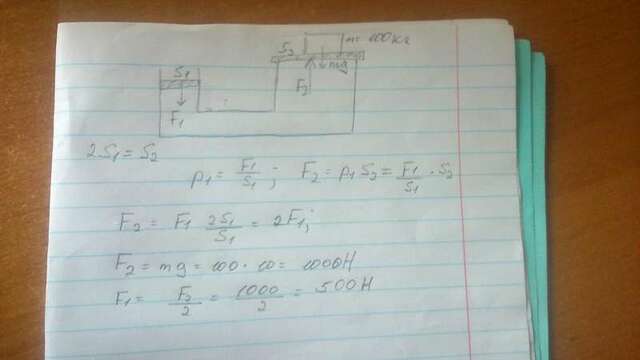 S₂ m = 100кг
S₁ mg
F₁ F₂
2S₁ = S₂
p₁ = F₁/S₁ ; F₂ = p₁S₂ = F₁/S₁ · S₂
F₂ = F₁ 2S₁/S₁ = 2F₁;
F₂ = mg = 100 · 10 = 1000Н
F₁ = F₂/2 = 1000/2 = 500Н